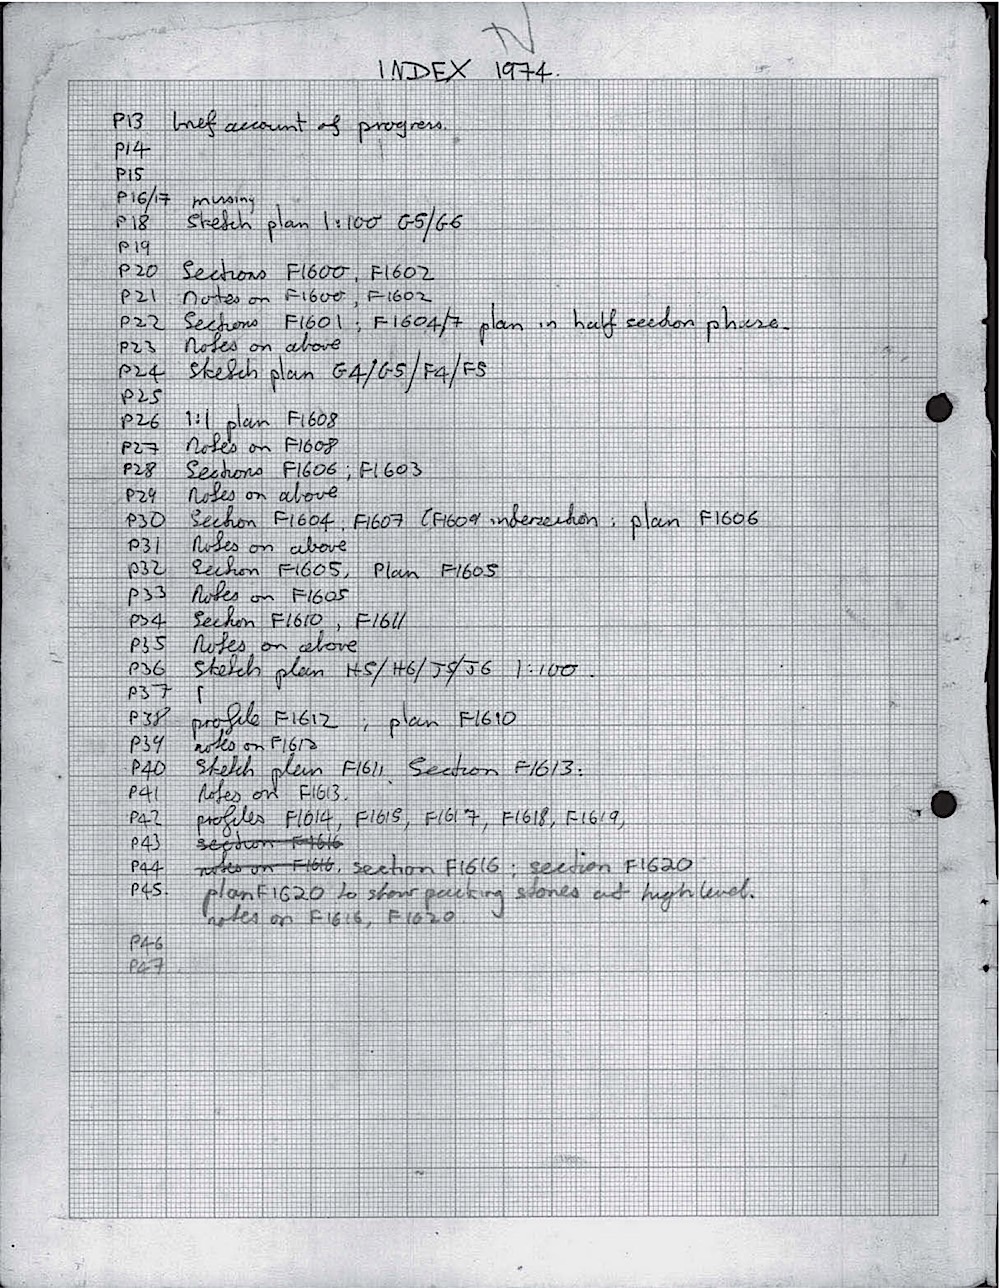 IV
INDEX 1974.
P13 brief account of progress.
P14
P15
P16/17 missing
P18 Sketch plan 1:100 G5/G6
P19
P20 Sections F1600, F1602
P21 Notes on F1600, F1602
P22 Sections F1601; F1604/7 plan in half section phase.
P23 Notes on above
P24 Sketch plan G4/G5/F4/F5
P25
P26 1:1 plan F1608
P27 Notes on F1608
P28 Sections F1606; F1603
P29 Notes on above
P30 Section F1604, F1607 (F1609 intersection; plan F1606
P31 Notes on above
P32 Section F1605, Plan F1605
P33 Notes on F1605
P34 Section F1610, F1611
P35 Notes on above
P36 Sketch plan H5/H6/J5/J6 1:100.
P37
P38 profile F1612; plan F1610
P39 notes on F1612
P40 Sketch plan F1611. Section F1613.
P41 Notes on F1613.
P42 profiles F1614, F1615, F1617, F1618, F1619,
P43 section F1616
P44 notes on F1616. section F1616; section F1620
P45. plan F1620 to show packing stones at high level.
notes on F1616, F1620.
P46
P47